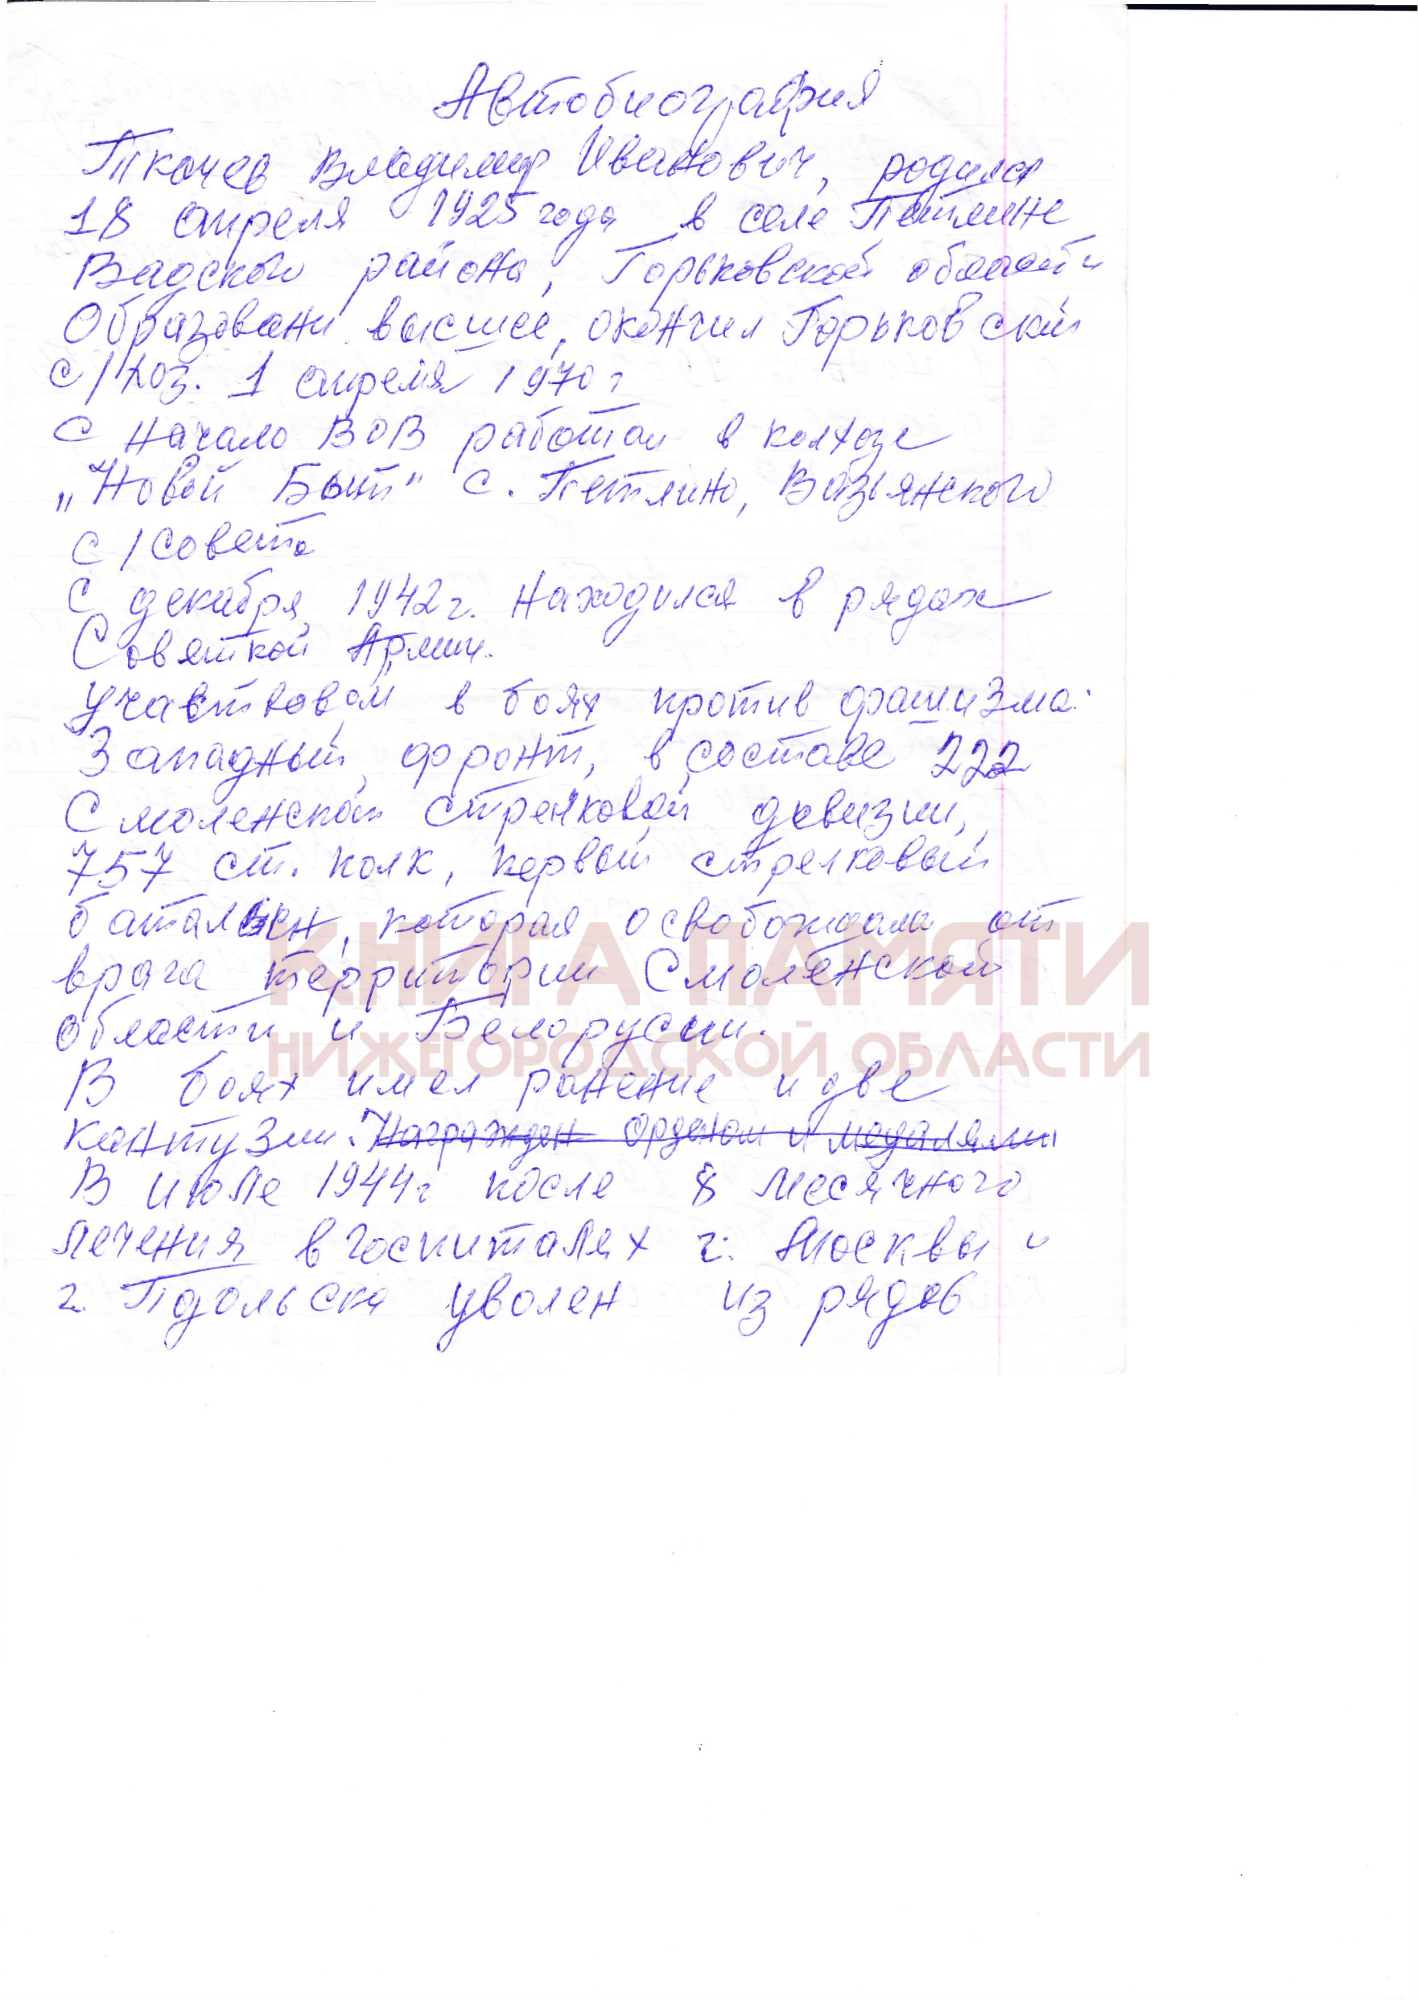 Автобиография
Ткачев Владимир Иванович, родился
18 апреля 1925 года в селе Петлине
Вадского района, Горьковской области
Образовани высшее, окончил Горьковский
с/хоз. 1 апреля 1970 г
С начало ВОВ работал в колхозе
„Новой Быт" с. Петлино, Вазьянского
с/совета
С декабря 1942 г. находился в рядах
Советкой Армии.
Участвовал в боях против фашизма:
Западный фронт, в составе 222
Смоленской стрелковой дивизии,
757 ст. полк, первый стрелковый
батальен, которая освобождала от
врага территории Смоленской
области и Белорусии.
В боях имел ранение и две
контузии. Награжден Орденом и медалями
В июле 1944 г после 8 месячного
лечения в госпиталях г. Москвы и
г. Подольска уволен из рядов
КНИГА ПАМЯТИ
НИЖЕГОРОДСКОЙ ОБЛАСТИ